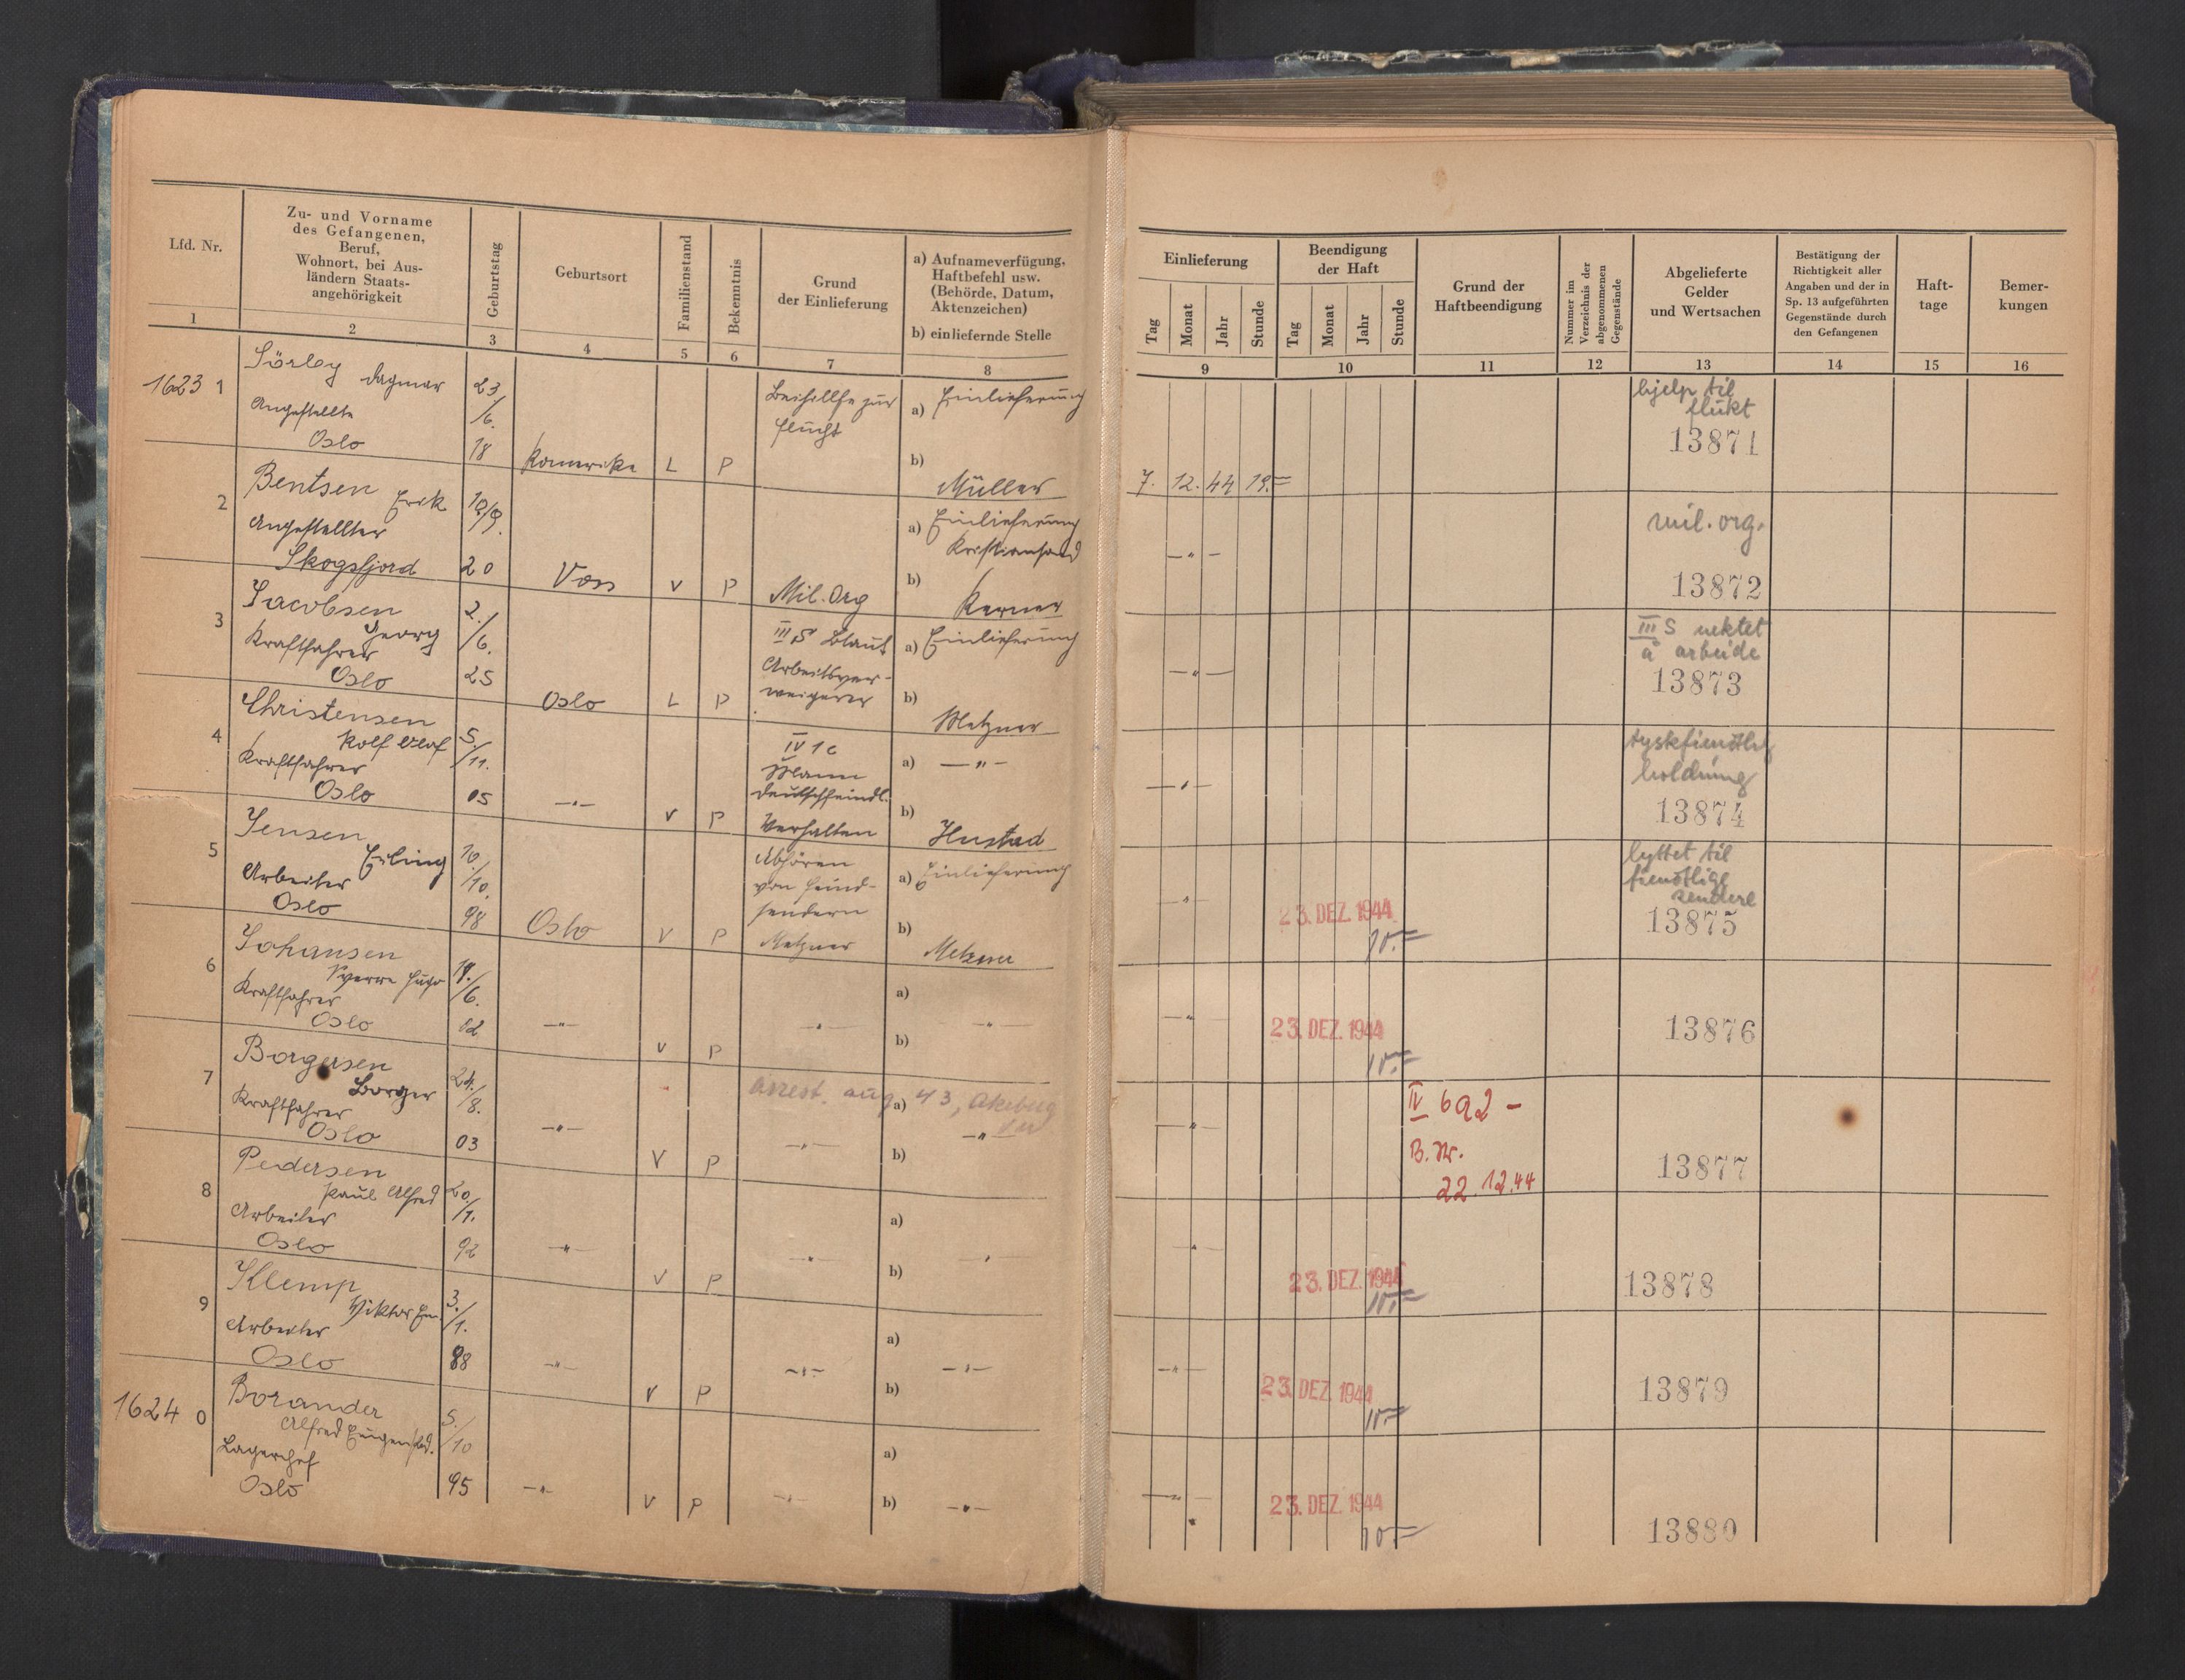 Lfd. Nr.
1
Zu- und Vorname
des Gefangenen,
Beruf,
Wohnort, bei Aus-
ländern Staats-
angehörigkeit
2
Geburtstag
3
Geburtsort
4
Familienstand
5
Bekenntnis
6
Grund
der Einlieferung
7
a) Aufnameverfügung,
Haftbefehl usw.
(Behörde, Datum,
Aktenzeichen)
b) einliefernde Stelle
8
Einlieferung
Tag Monat Jahr Stunde
9
Beendigung
der Haft
Tag Monat Jahr Stunde
10
Grund der
Haftbeendigung
11
Nummer im
Verzeichnis der
abgenommenen
Gegenstände
12
Abgelieferte
Gelder
und Wertsachen
13
Bestätigung der
Richtigkeit aller
Angaben und der in
Sp. 13 aufgeführten
Gegenstände durch
den Gefangenen
14
Haft-
tage
15
Bemer-
kungen
16
1623 1
Sörley
Dagmar
Angestellte
Oslo
23/
6.
18
Romerike L P
Beihillfe zur
Flucht
a) Einlieferung
b)
Müller
7. 12. 44 19.=
hjelp til
flukt
13871
2
Bentsen
Erik
Angestellter
Skogsfjord
20
Voss V P
Mil. Org
a) Einlieferung
Kristiansand
b)
Kerner
—"—
mil. org.
13872
3
Jacobsen
Georg
Kraftfahrer
Oslo
2./
6.
25
Oslo L P
III S Blaut
Arbeitsver-
weigerer
a) Einlieferung
b)
Metzner
—"—
III S nektet
å arbeide
13873
4
Christensen
Rolf Olaf
Kraftfahrer
Oslo
5./
11.
05
—"— V P
IV 1c
Mann
deutschfeindl.
Verhalten
a) —"—
b)
Hustad
—"—
tyskfiendtlig
holdning
13874
5
Jensen
Erling
Arbeiter
Oslo
10./
10.
98
Oslo V P
Abhören
von Feind-
sendern
Metzner
a) Einlieferung
b)
Metzner
—"—
23. DEZ. 1944
10.=
lyttet til
fiendtlige
sendere
13875
6
Johansen
Sverre Hugo
Kraftfahrer
Oslo
—"— V P
—"—
a)
—"—
b)
—"—
23. DEZ. 1944
10.=
13876
7
Borgersen
Borger
Kraftfahrer
Oslo
24./
8.
03
—"— V P
arrest. aug. 43, Akebergvei
—"—
a)
—"—
b)
—"—
IV 6a2 –
B. Nr.
22.12.44
13877
8
Pedersen
Paul Alfred
Arbeiter
Oslo
20./
1.
92
—"— V P
—"—
a)
—"—
b)
—"—
23. DEZ. 1944
10.=
13878
9
Klemp
Viktor
Arbeiter
Oslo
3./
1.
88
—"— V P
—"—
a)
—"—
b)
—"—
23. DEZ. 1944
10.=
13879
1624 0
Borander
Alfred Eugen
Lagerchef
Oslo
5./
10
95
—"— V P
—"—
a)
b) —"—
—"—
23. DEZ. 1944
10.=
13880